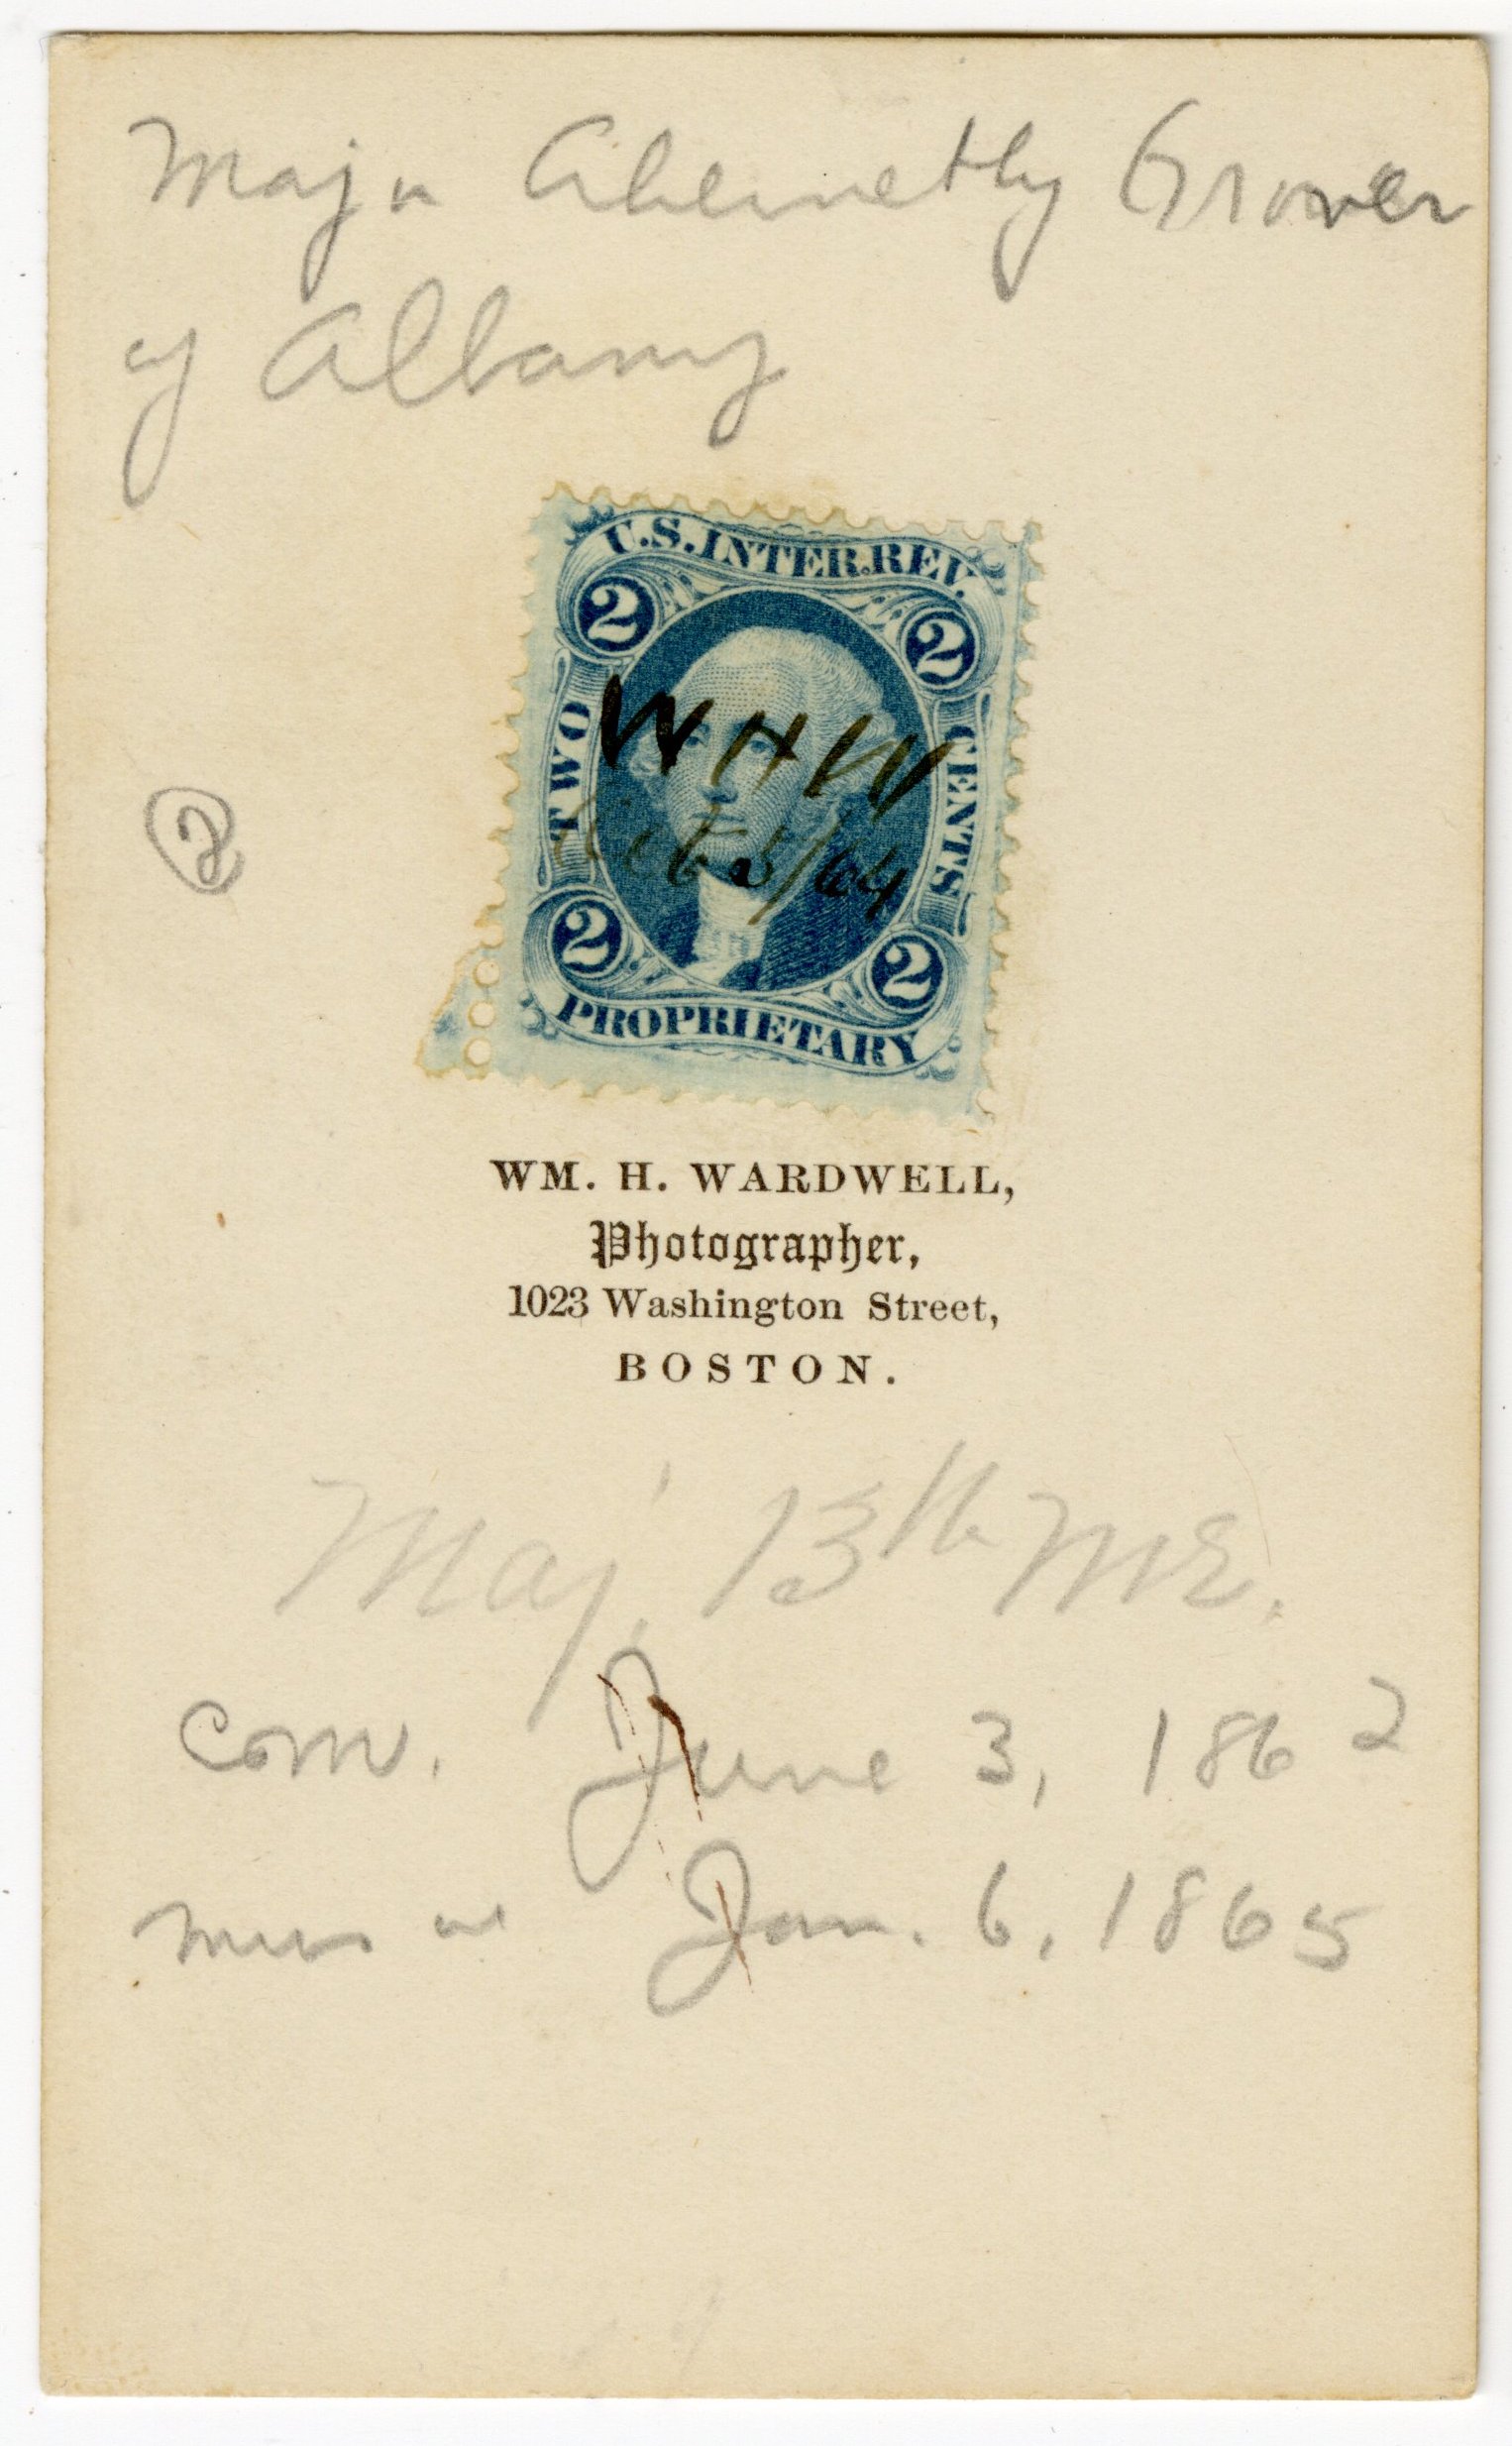 Major Abernethy Grover
of Albany
U.S. INTER. REV.
2 2
TWO CENTS
WHW
Oct 3/64
2 2
PROPRIETARY
2
WM. H. WARDWELL,
Photographer,
1023 Washington Street,
BOSTON.
Maj. 13th ME.
Com. June 3, 1862
Jan. 6, 1865